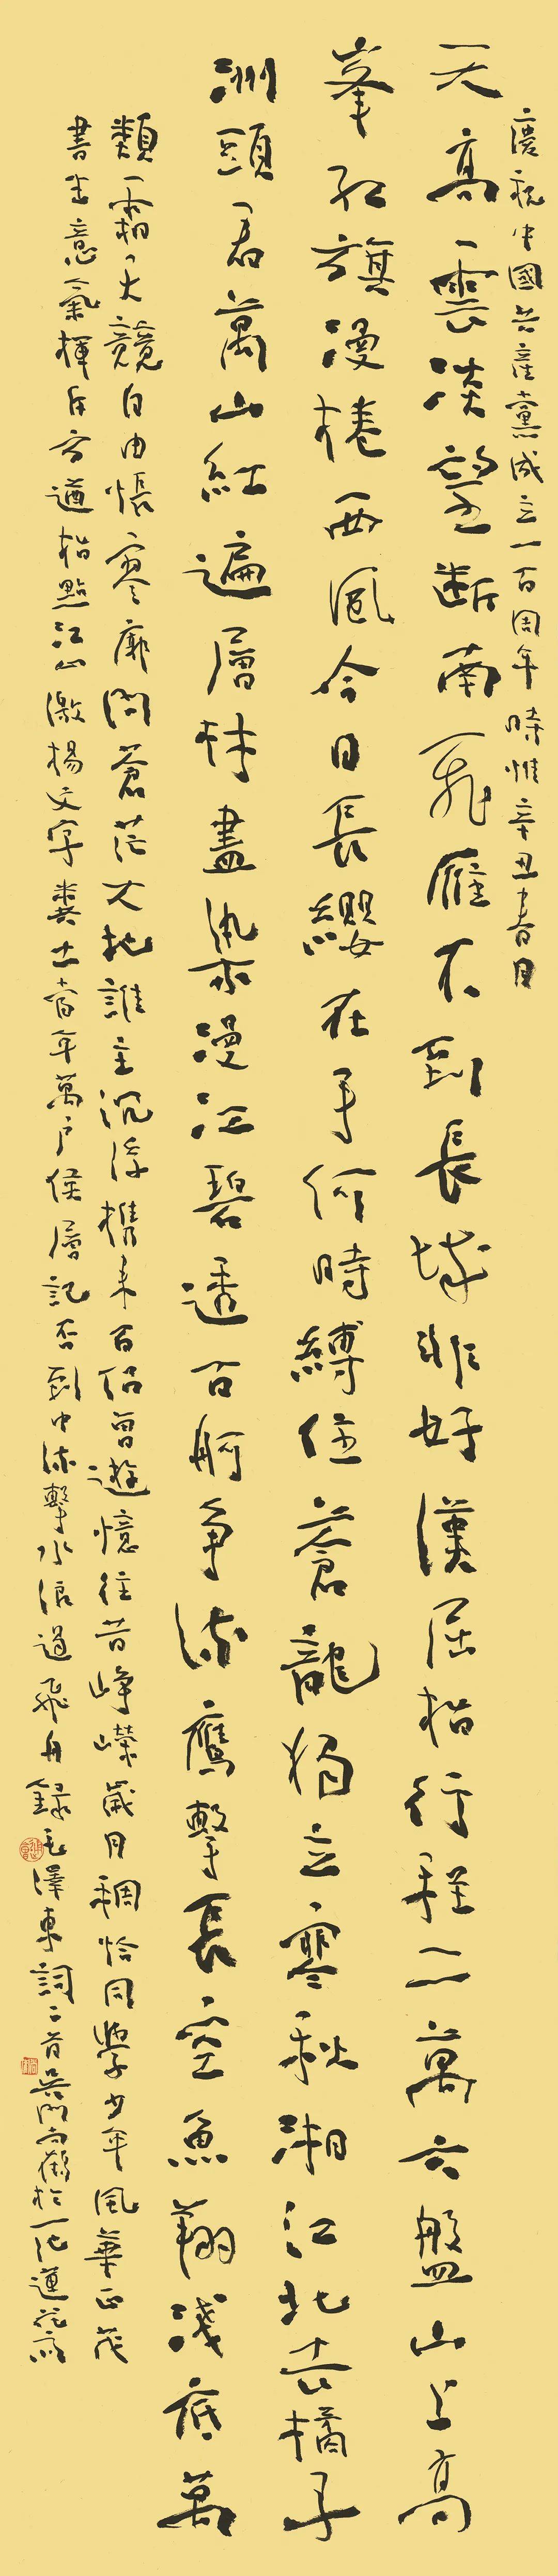 慶祝中國共產黨成立一百周年時惟辛丑春月
天高雲淡望斷南飛雁不到長城非好漢屈指行程二萬六盤山上高
峯紅旗漫捲西風今日長纓在手何時縛住蒼龍獨立寒秋湘江北去橘子
洲頭看萬山紅遍層林盡染漫江碧透百舸爭流鷹擊長空魚翔淺底萬
類霜天競自由悵寥廓問蒼茫大地誰主沉浮攜來百侶曾遊憶往昔崢嶸歲月稠恰同學少年風華正茂
書生意氣揮斥方遒指點江山激揚文字糞土當年萬戶侯曾記否到中流擊水浪遏飛舟錄毛澤東詞二首吳門尚鶴於一化蓮花